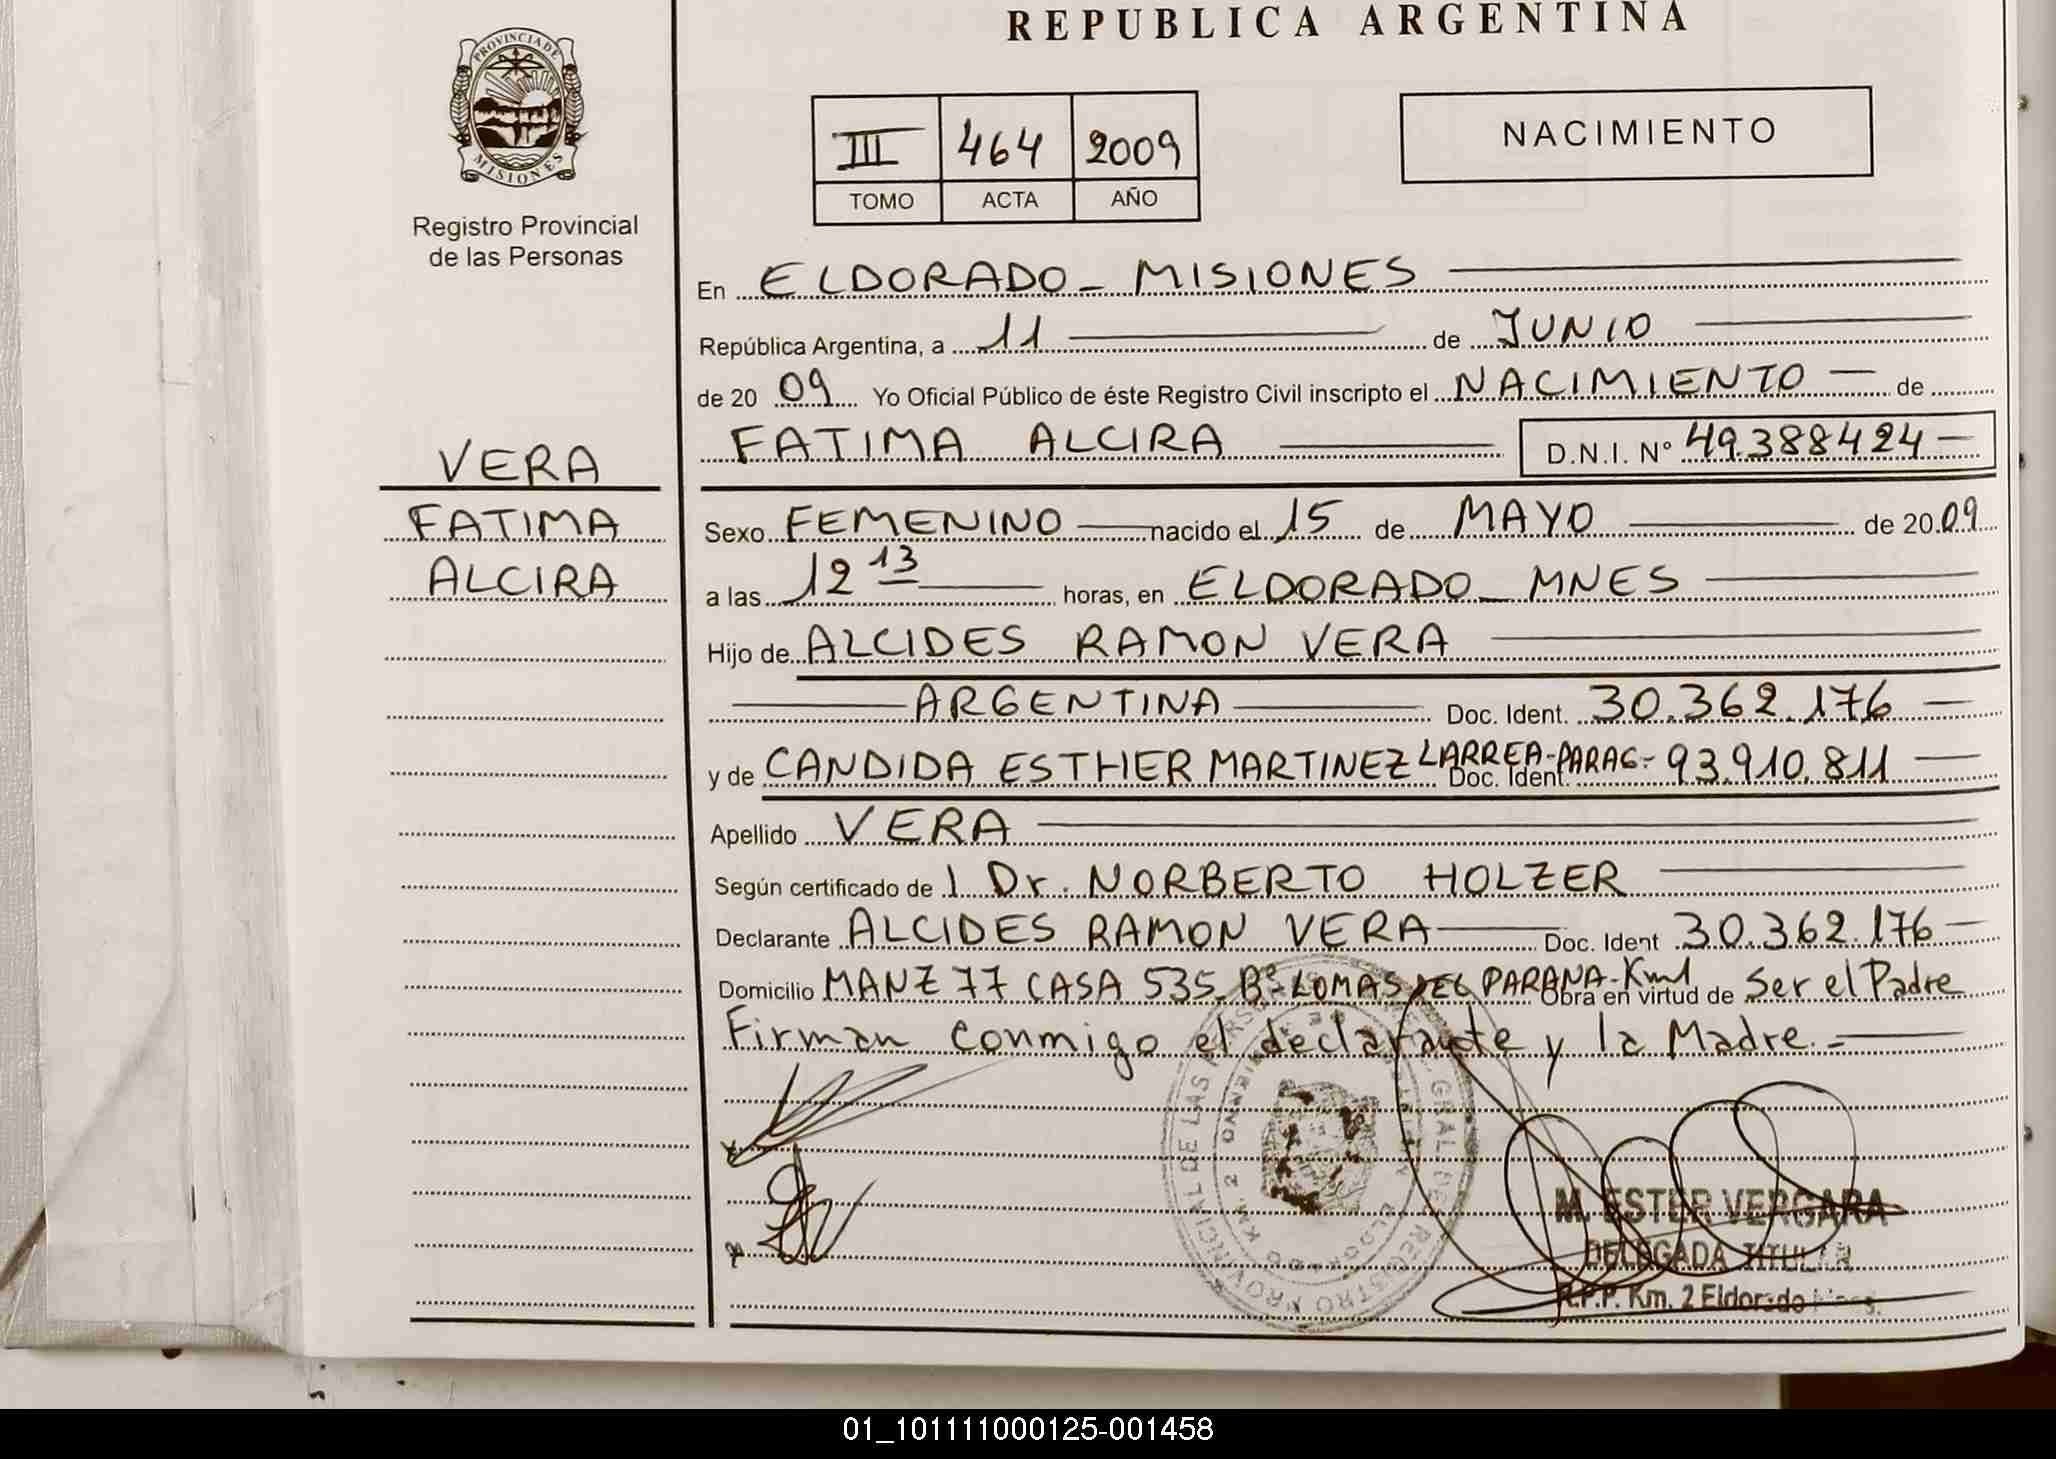 REPUBLICA ARGENTINA
PROVINCIA DE
MISIONES
Registro Provincial
de las Personas
III 464 2009
TOMO ACTA AÑO
NACIMIENTO
En ELDORADO - MISIONES
República Argentina, a 11 de JUNIO
de 20 09 Yo Oficial Público de éste Registro Civil inscripto el NACIMIENTO de
FATIMA ALCIRA D.N.I. Nº 49.388424
VERA
FATIMA
ALCIRA
Sexo FEMENINO nacido el 15 de MAYO de 20 09
a las 12 13 horas, en ELDORADO - MNES
Hijo de ALCIDES RAMON VERA
ARGENTINA Doc. Ident. 30.362.176
y de CANDIDA ESTHER MARTINEZ LARREA-PARAG- Doc. Ident. 93.910.811
Apellido VERA
Según certificado de l Dr. NORBERTO HOLZER
Declarante ALCIDES RAMON VERA Doc. Ident 30.362.176
Domicilio MANZ 77 CASA 535 Bº LOMAS DEL PARANA-Km1 Obra en virtud de Ser el Padre
Firman conmigo el declarante y la Madre.-
M. ESTER VERGARA
DELEGADA TITULAR
R.P.P. Km. 2 Eldorado
01_101111000125-001458